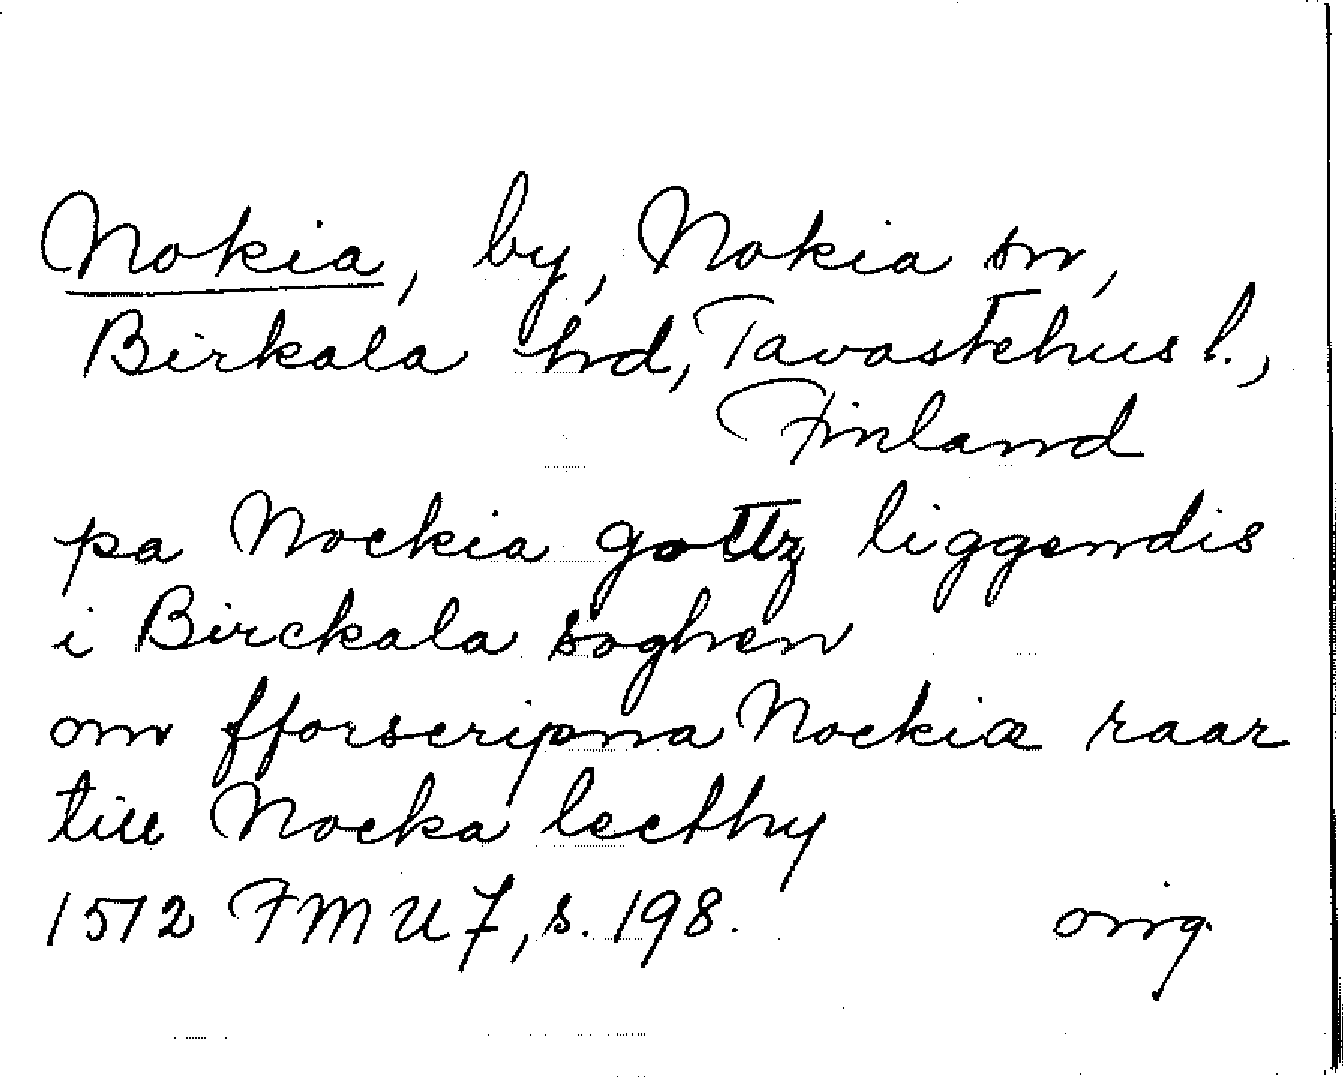 Nokia, by, Nokia sn,
Birkala hd, Tavastehus l.,
Finland
pa Nockia gottz liggendis
i Birckala soghen
om fforscripna Nockia raar
till Nocka lecthy
1512 FMU 7, s. 198. orig.